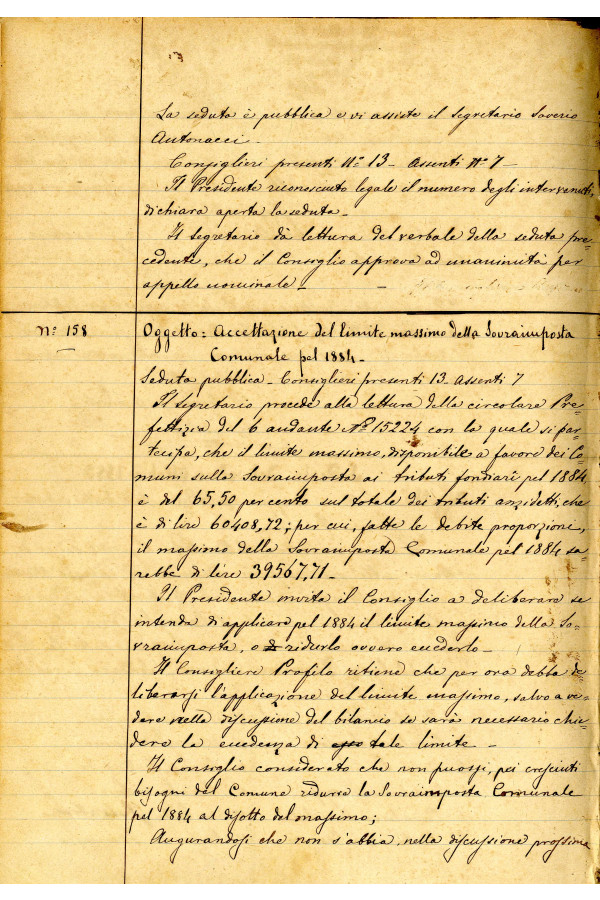 La seduta è pubblica e vi assiste il Segretario Saverio
Antonacci.
Consiglieri presenti N.º 13 - Assenti N.º 7
Il Presidente riconosciuto legale il numero degli intervenuti,
dichiara aperta la seduta.
Il Segretario dà lettura del verbale della seduta pre=
cedente, che il Consiglio approva ad unanimità per
appello nominale.
N.º 158
Oggetto: Accettazione del limite massimo della Sovraimposta
Comunale pel 1884.
Seduta pubblica - Consiglieri presenti 13. Assenti 7
Il Segretario procede alla lettura della circolare Pre=
fettizia del 6 andante N.º 15224 con la quale si par=
tecipa, che il limite massimo, disponibile a favore dei Co=
muni sulla Sovraimposta ai tributi fondiarî pel 1884
è del 65,50 per cento sul totale dei tributi anzidetti, che
è di lire 60408,72; per cui, fatte le debite proporzioni,
il massimo della Sovraimposta Comunale pel 1884 sa=
rebbe di lire 39567,71.
Il Presidente invita il Consiglio a deliberare se
intenda di applicare pel 1884 il limite massimo della So=
vraimposta, o ridurlo ovvero eccederlo.
Il Consigliere Profilo ritiene che per ora debba de=
liberarsi l'applicazione del limite massimo, salvo a ve=
dere nella discussione del bilancio se sarà necessario chie=
dere la eccedenza di esso tale limite.
Il Consiglio considerato che non puossi, pei cresciuti
bisogni del Comune ridurre la Sovraimposta Comunale
pel 1884 al disotto del massimo;
Augurandosi che non s'abbia, nella discussione prossima